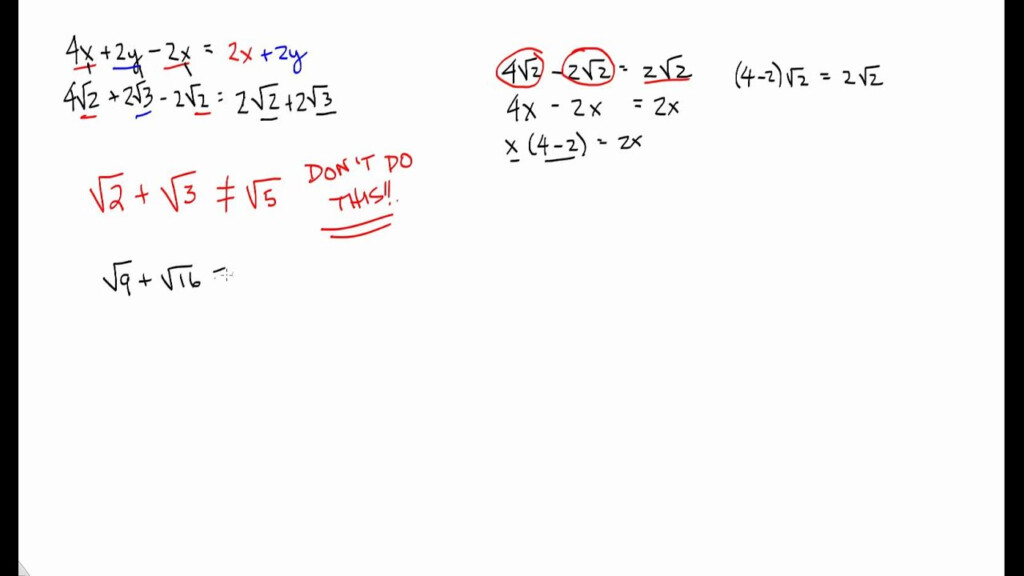 4x + 2y - 2x = 2x + 2y
4√2 + 2√3 - 2√2 = 2√2 + 2√3
√2 + √3 ≠ √5 DON'T DO THIS!!
√9 + √16 =
4√2 - 2√2 = 2√2 (4-2)√2 = 2√2
4x - 2x = 2x
x (4-2) = 2x